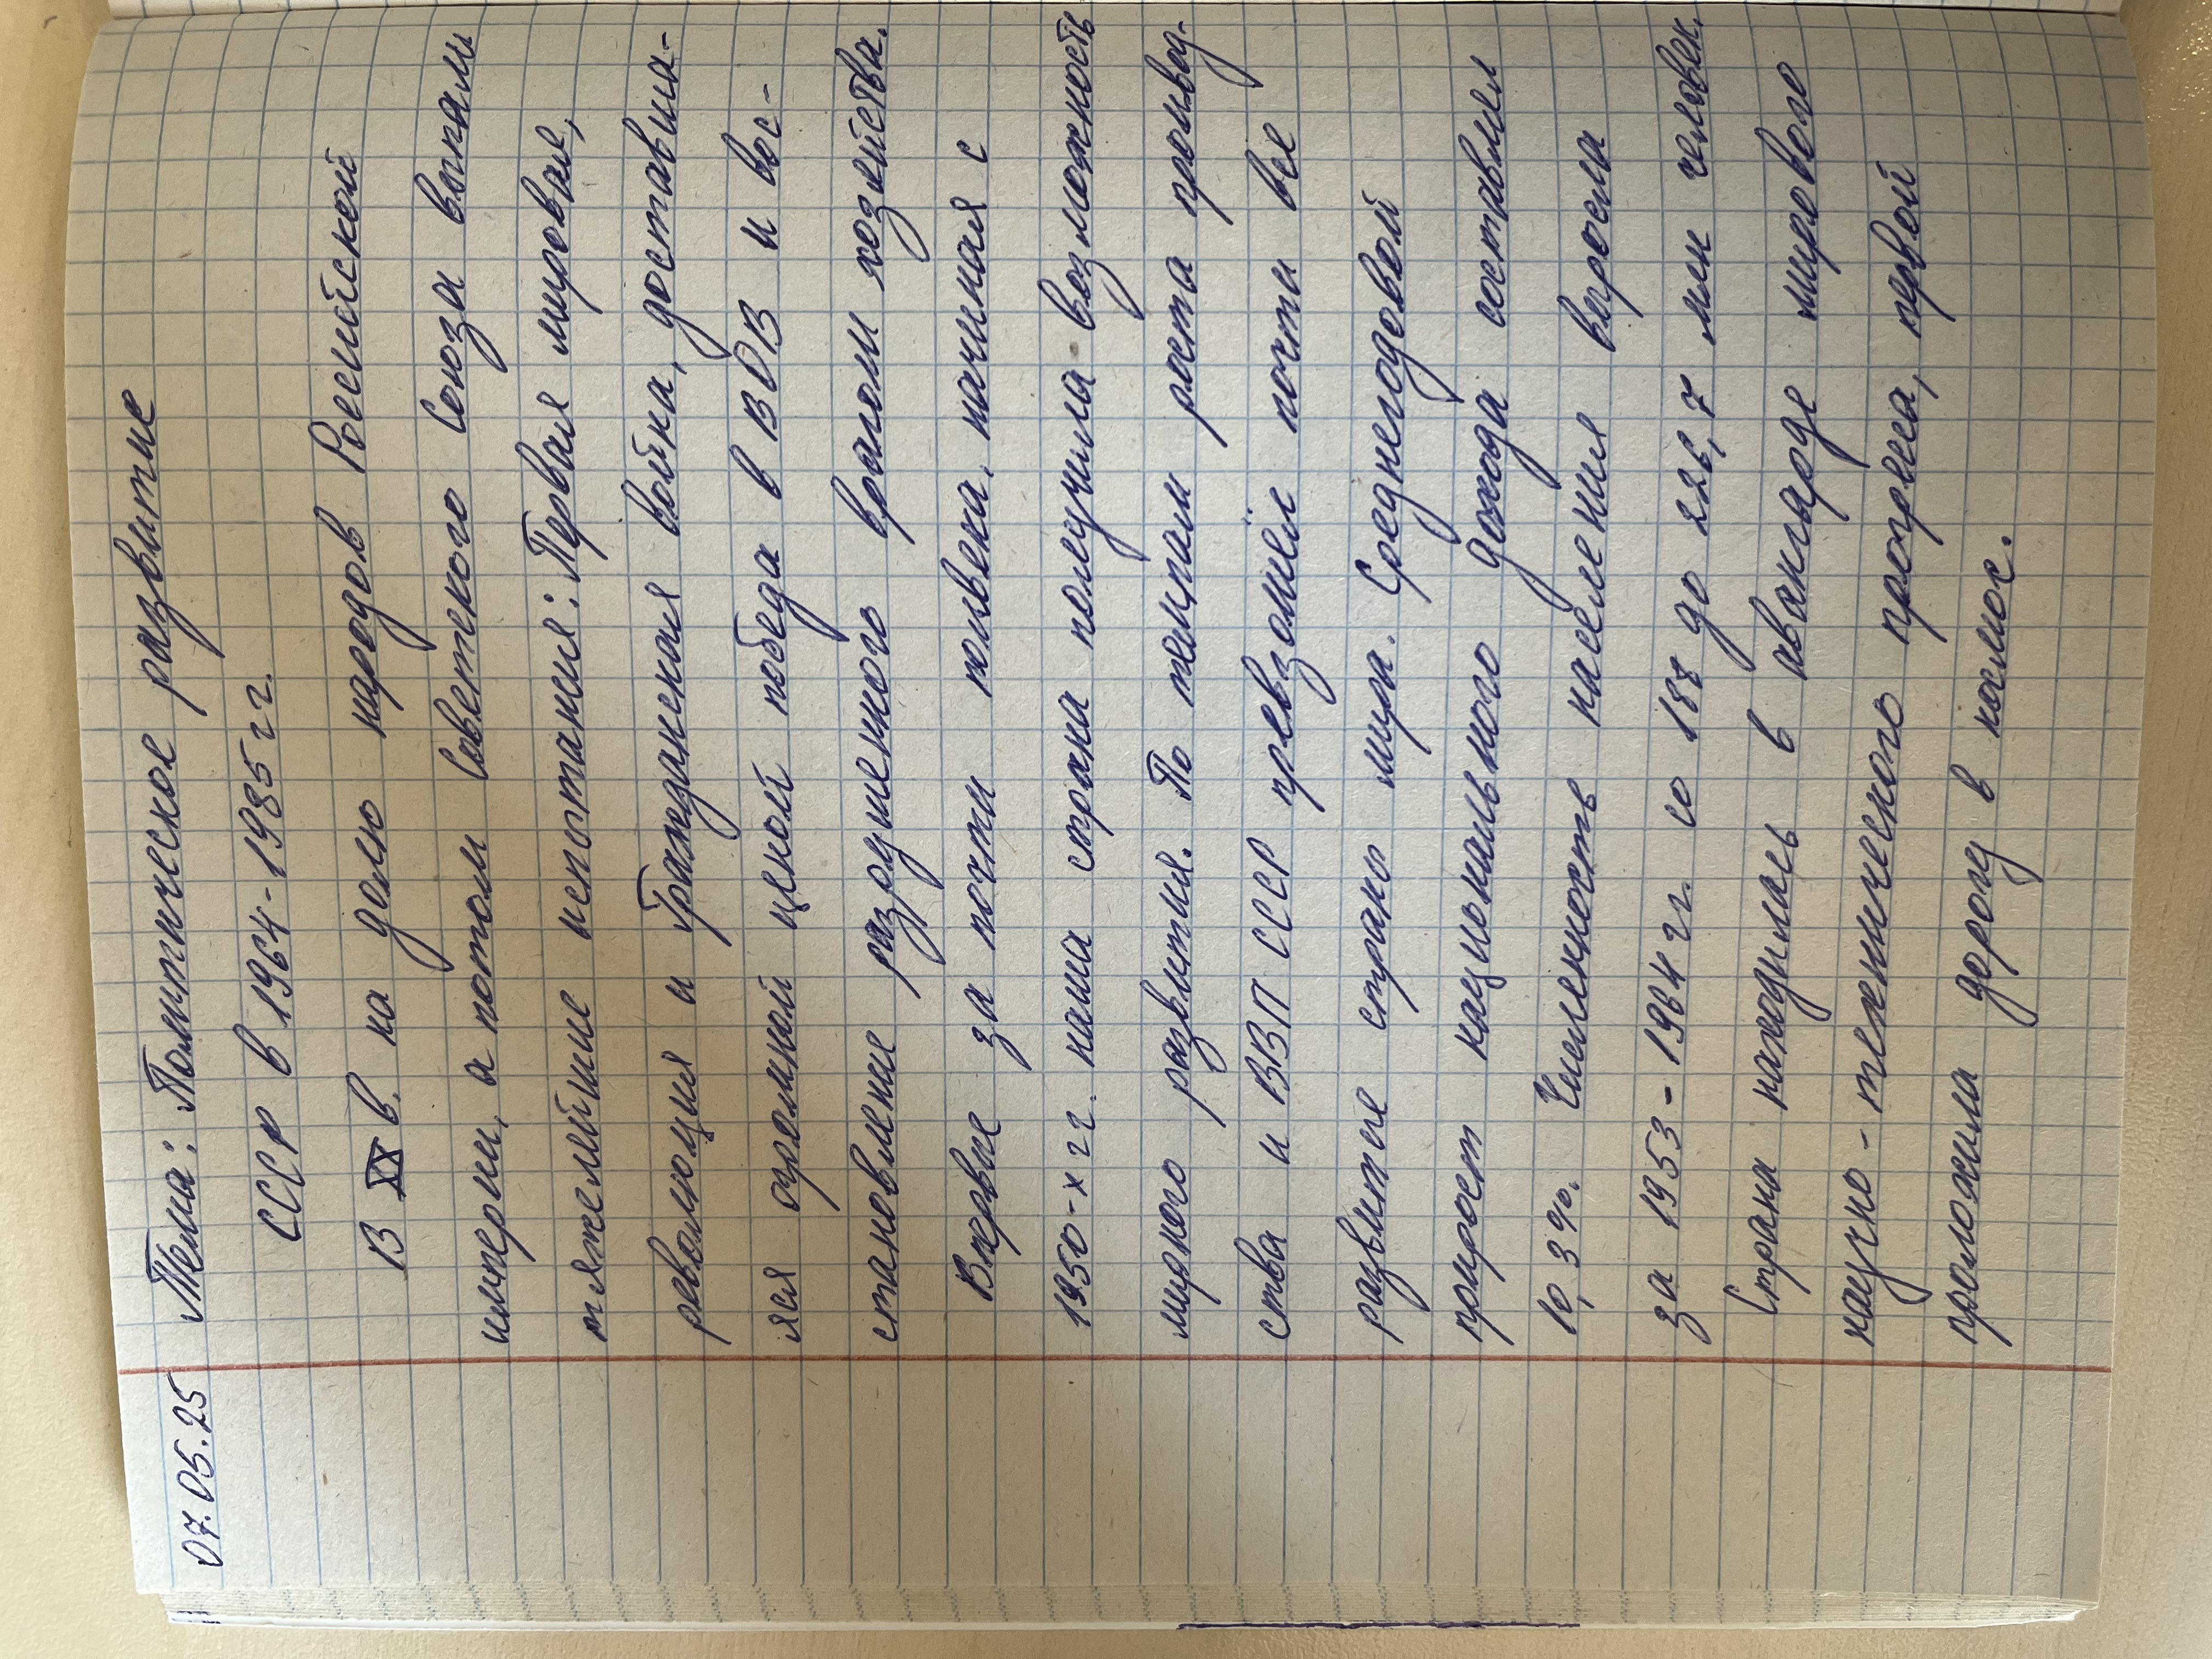 07.05.25 Тема: Политическое развитие
СССР в 1964-1985 гг.
В XX в. на долю народов Российской
империи, а потом Советского Союза выпали
тяжелейшие испытания: Первая мировая,
революция и Гражданская война, доставша-
яся огромной ценой победа в ВОВ и вос-
становление разрушенного врагом хозяйства.
Впервые за почти полвека, начиная с
1950-х гг. наша страна получила возможность
мирного развития. По темпам роста производ-
ства и ВВП СССР превзошёл почти все
развитые страны мира. Среднегодовой
прирост национального дохода составлял
10,3%. Численность населения выросла
за 1953-1964 гг. со 188 до 226,7 млн человек.
Страна находилась в авангарде мирового
научно-технического прогресса, первой
проложила дорогу в космос.